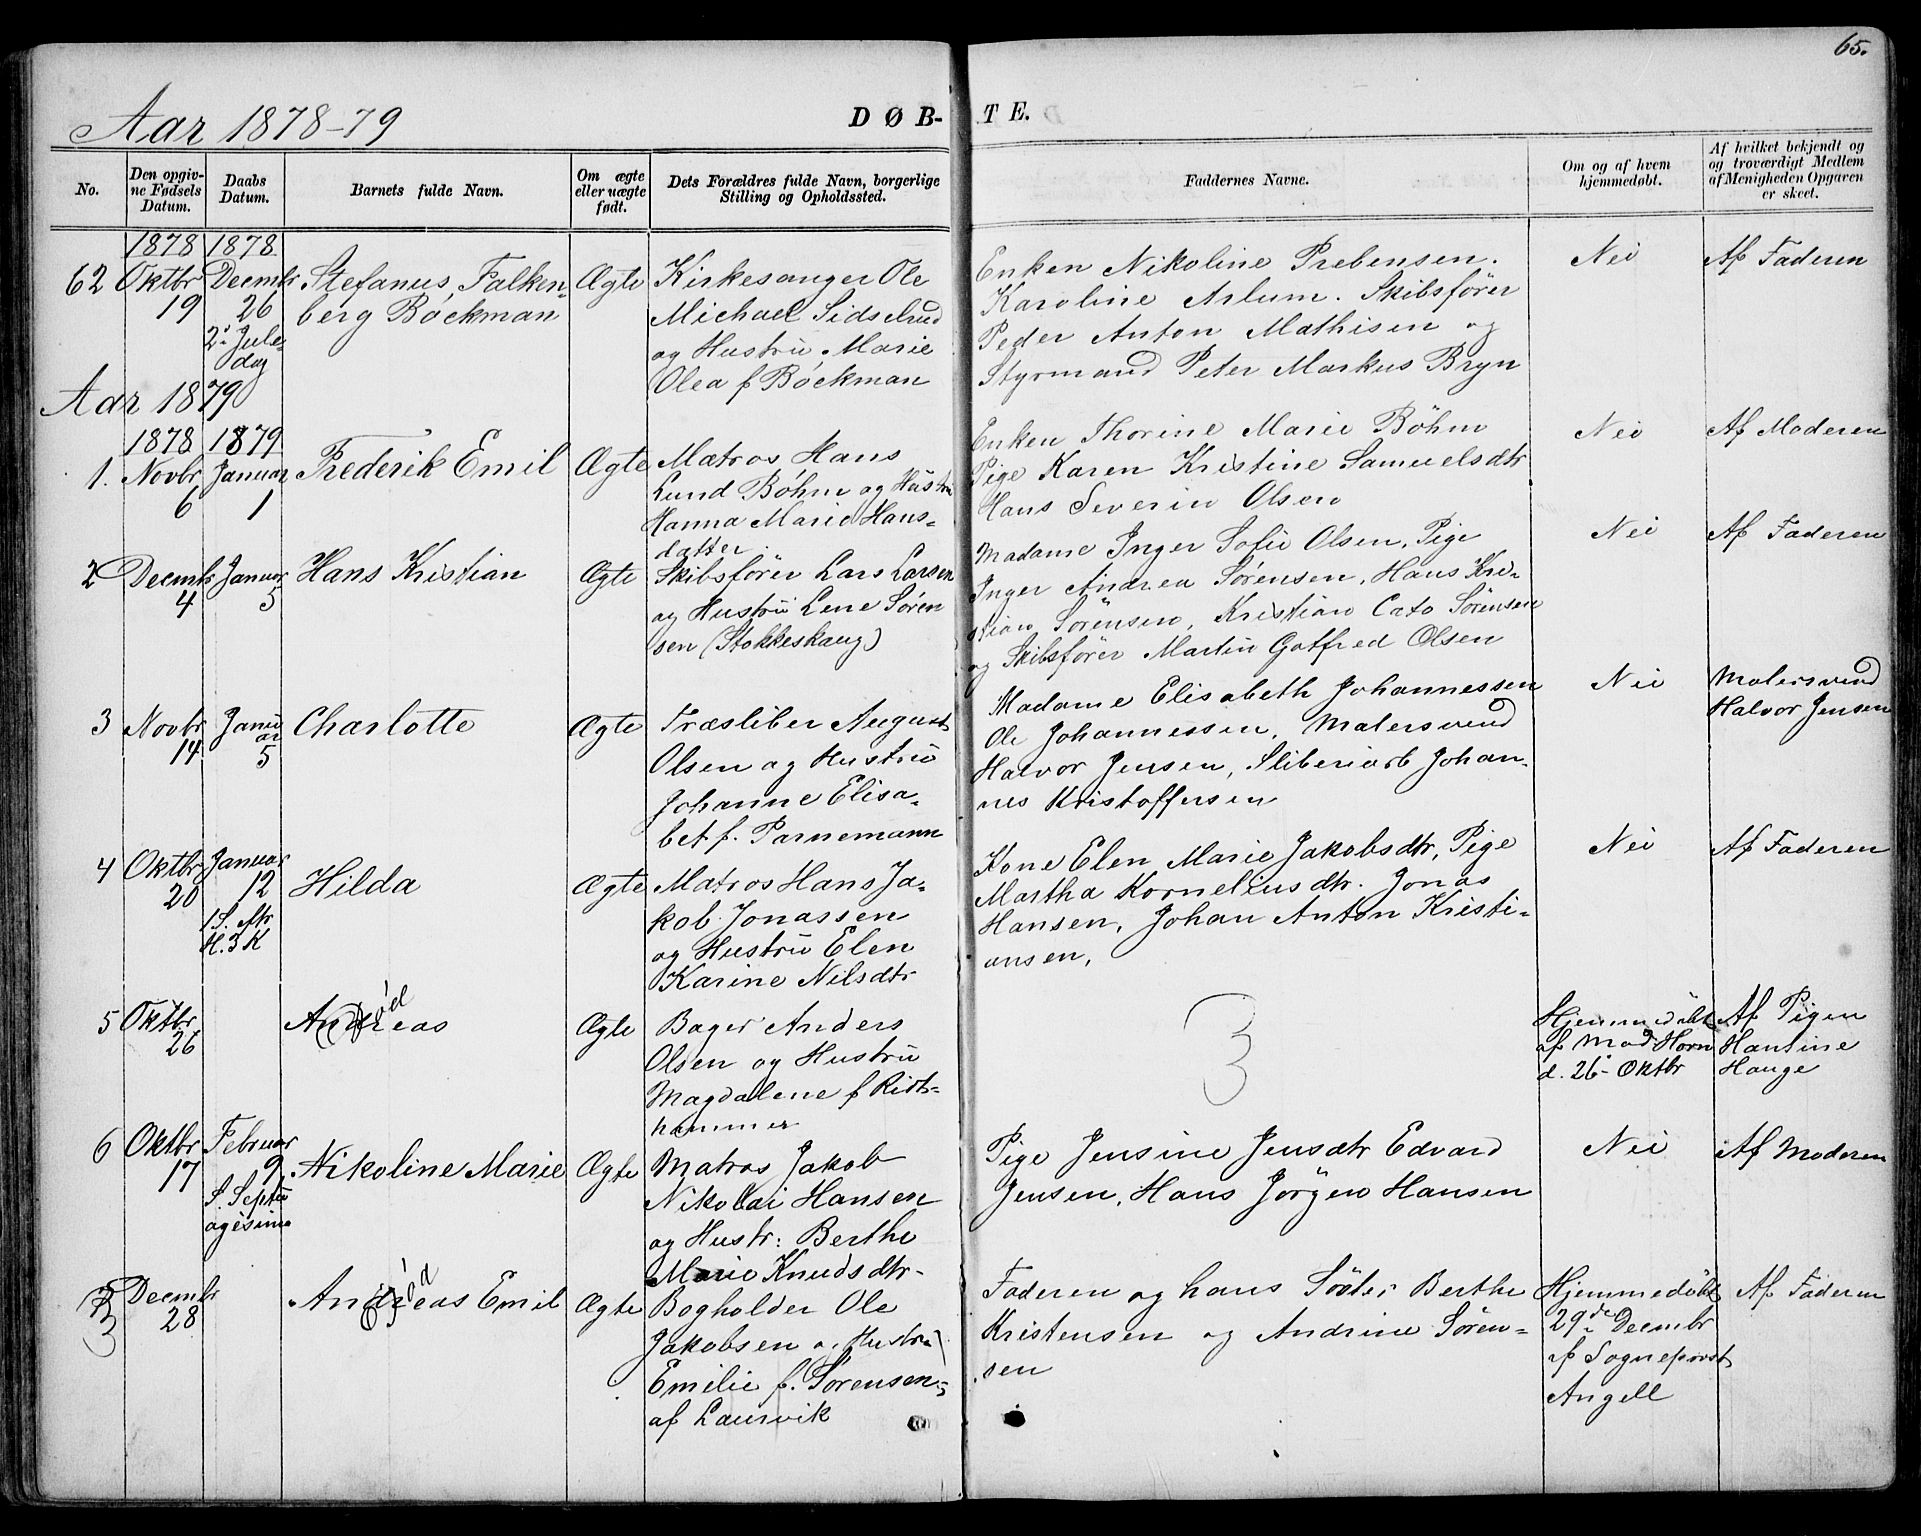 65.
Aar 1878-79
DØB-
TE.
No.
Den opgiv-
ne Fødsels
Datum.
Daabs
Datum.
Barnets fulde Navn.
Om ægte
eller uægte
født.
Dets Forældres fulde Navn, borgerlige
Stilling og Opholdssted.
Faddernes Navne.
Om og af hvem
hjemmedøbt.
Af hvilket bekjendt og
og troværdigt Medlem
af Menigheden Opgaven
er skeet.
1878 1878
62 Oktbr 19
Decmbr 26
2. Jule-
dag
Stefanus, Falken-
berg Bøckman
Ægte
Kirkesanger Ole
Michael Sidselrud
og Hustru Marie
Olea f Bøckman
Enken Nikoline Prebensen.
Karoline Arlum. Skibsfører
Peder Anton Mathisen og
Styrmand Peter Markus Bryn
Nei
Af Faderen
Aar 1879
1878 1879
1. Novbr 6
Januar 1
Frederik Emil
Ægte
Matros Hans
Lund Bøhm og Hustru
Hanna Marie Hans-
datter
Enken Thorine Marie Böhm
Pige Karen Kristine Samuelsdtr
Hans Severin Olsen
Nei
Af Moderen
2 Decmbr 4
Januar 5
Hans Kristian
Ægte
Skibsfører Lars Larsen
og Hustru Lene Søren
sen (Stokkeskaug)
Madame Inger Sofie Olsen, Pige
Inger Andrea Sørensen, Hans Kri-
stian Sørensen, Kristian Cato Sørensen
og Skibsfører Martin Gotfred Olsen
Nei
Af Faderen
3 Novbr 14
Janu
ar
5
Charlotte
Ægte
Træsliber August
Olsen og Hustru
Johanne Elisa-
bet f. Parnemann
Madame Elisabeth Johannessen
Ole Johannessen, Malersvend
Halvor Jensen, Sliberiarb Johan-
nes Kristoffersen
Nei
Malersvend
Halvor Jensen
4 Oktbr 20
Januar 12
1 S.
H. 3 K
Hilda
Ægte
Matros Hans Ja-
kob Jonassen
og Hustru Elen
Karine Nilsdtr
Kone Elen Marie Jakobsdtr, Pige
Martha Korneliusdtr. Jonas
Hansen, Johan Anton Kristi-
ansen,
Nei
Af Faderen
5 Oktbr 26
Andreas
død
Ægte
Bager Anders
Olsen og Hustru
Magdalene f Rists-
hammer
3
Hjemmedøbt
af Mad Horn
d. 26 Oktbr
Af Pigen
Hantine
Hauge
6 Oktbr 17
Februar 9
S. Septu
agesima
Nikoline Marie
Ægte
Matros Jakob
Nikolai Hansen
og Hustr: Berthe
Marie Knudsdtr-
Pige Jensine Jensdtr Edvard
Jensen, Hans Jørgen Hansen
Nei
Af Moderen
3
Decmbr 28
Andreas Emil
død
Ægte
Bogholder Ole
Jakobsen og Hustru
Emilie f. Sørensen
af Laurvik
Faderen og hans Søster Berthe
Kristensen og Andrine Søren-
sen
Hjemmedøbt
29de Decmbr
af Sogneprost
Angell
Af Faderen